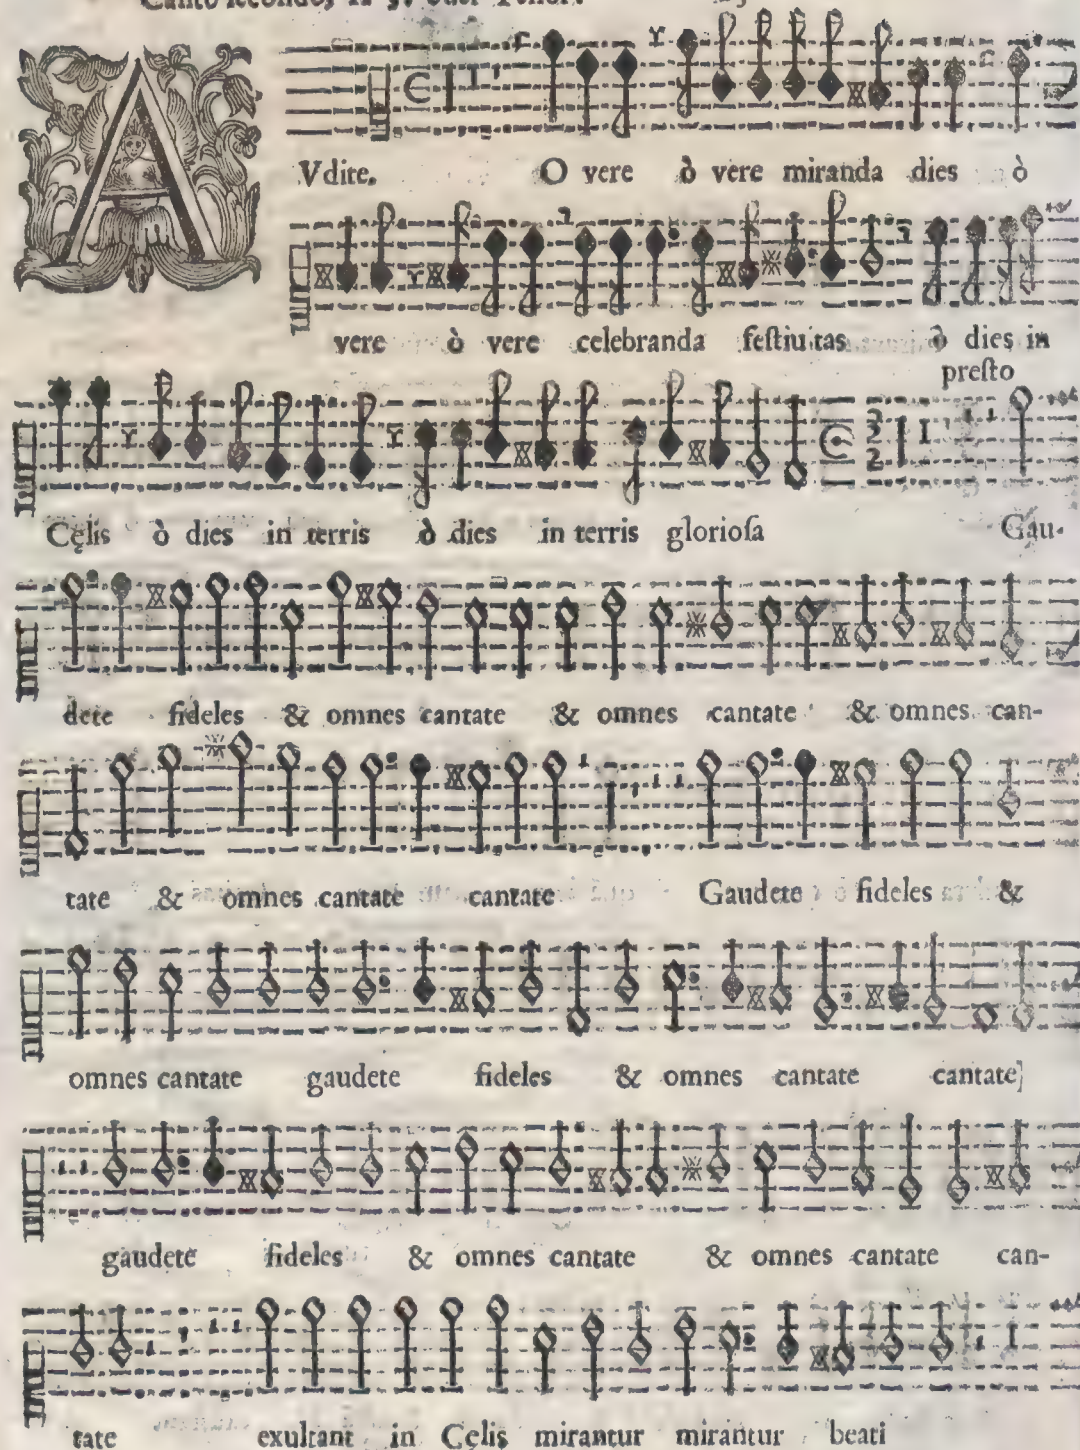 Canto secondo,
A
Vdite. O vere ò vere miranda dies ò
vere ò vere celebranda festiuitas ò dies in
presto
Cęlis ò dies in terris ò dies in terris gloriosa Gau-
dete fideles & omnes cantate & omnes cantate & omnes can-
tate & omnes cantate cantate Gaudete fideles &
omnes cantate gaudete fideles & omnes cantate cantate
gaudete fideles & omnes cantate & omnes cantate can-
tate exultant in Cęlis mirantur mirantur beati